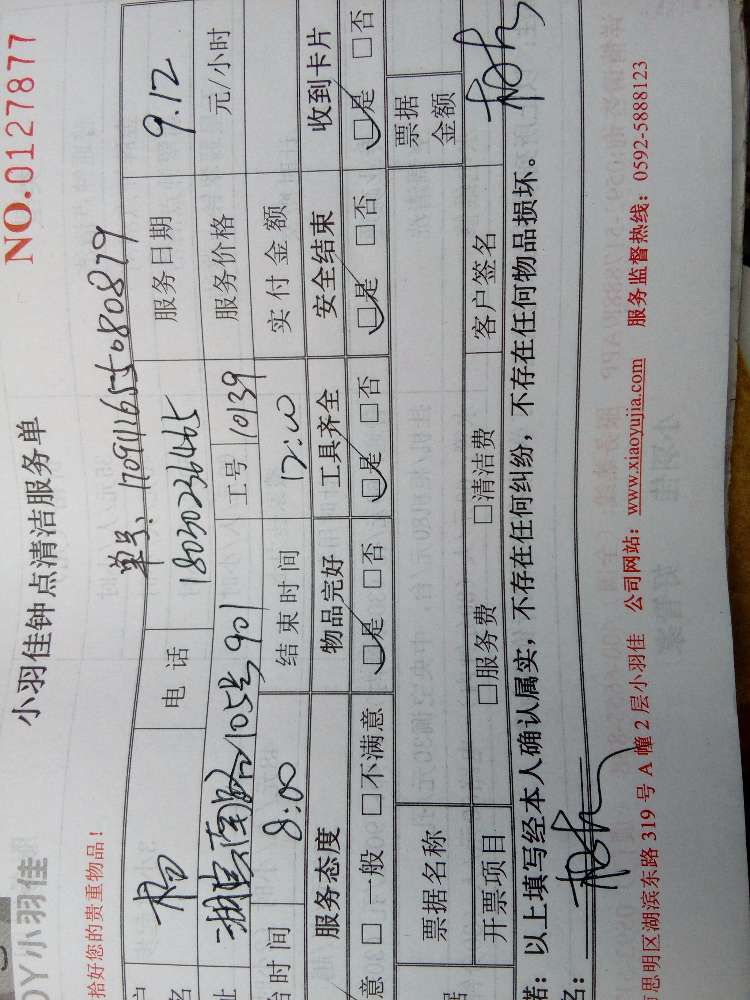 NO.0127877
小羽佳钟点清洁服务单
DY小羽佳
拾好您的贵重物品！
单号、
电话 18030236465 服务日期 9.12
址 湖滨南路105号901 工号 10139 服务价格 元/小时
台时间 8:00 结束时间 12:00 实付金额
服务态度 物品完好 工具齐全 安全结束 收到卡片
意 □一般 □不满意 □是 □否 □是 □否 □是 □否 □是 □否
据 票据名称 票据金额
开票项目 □服务费 □清洁费 客户签名
诺：以上填写经本人确认属实，不存在任何纠纷，不存在任何物品损坏。
名：
思明区湖滨东路 319 号 A 幢 2 层小羽佳 公司网站：www.xiaoyujia.com 服务监督热线：0592-5888123